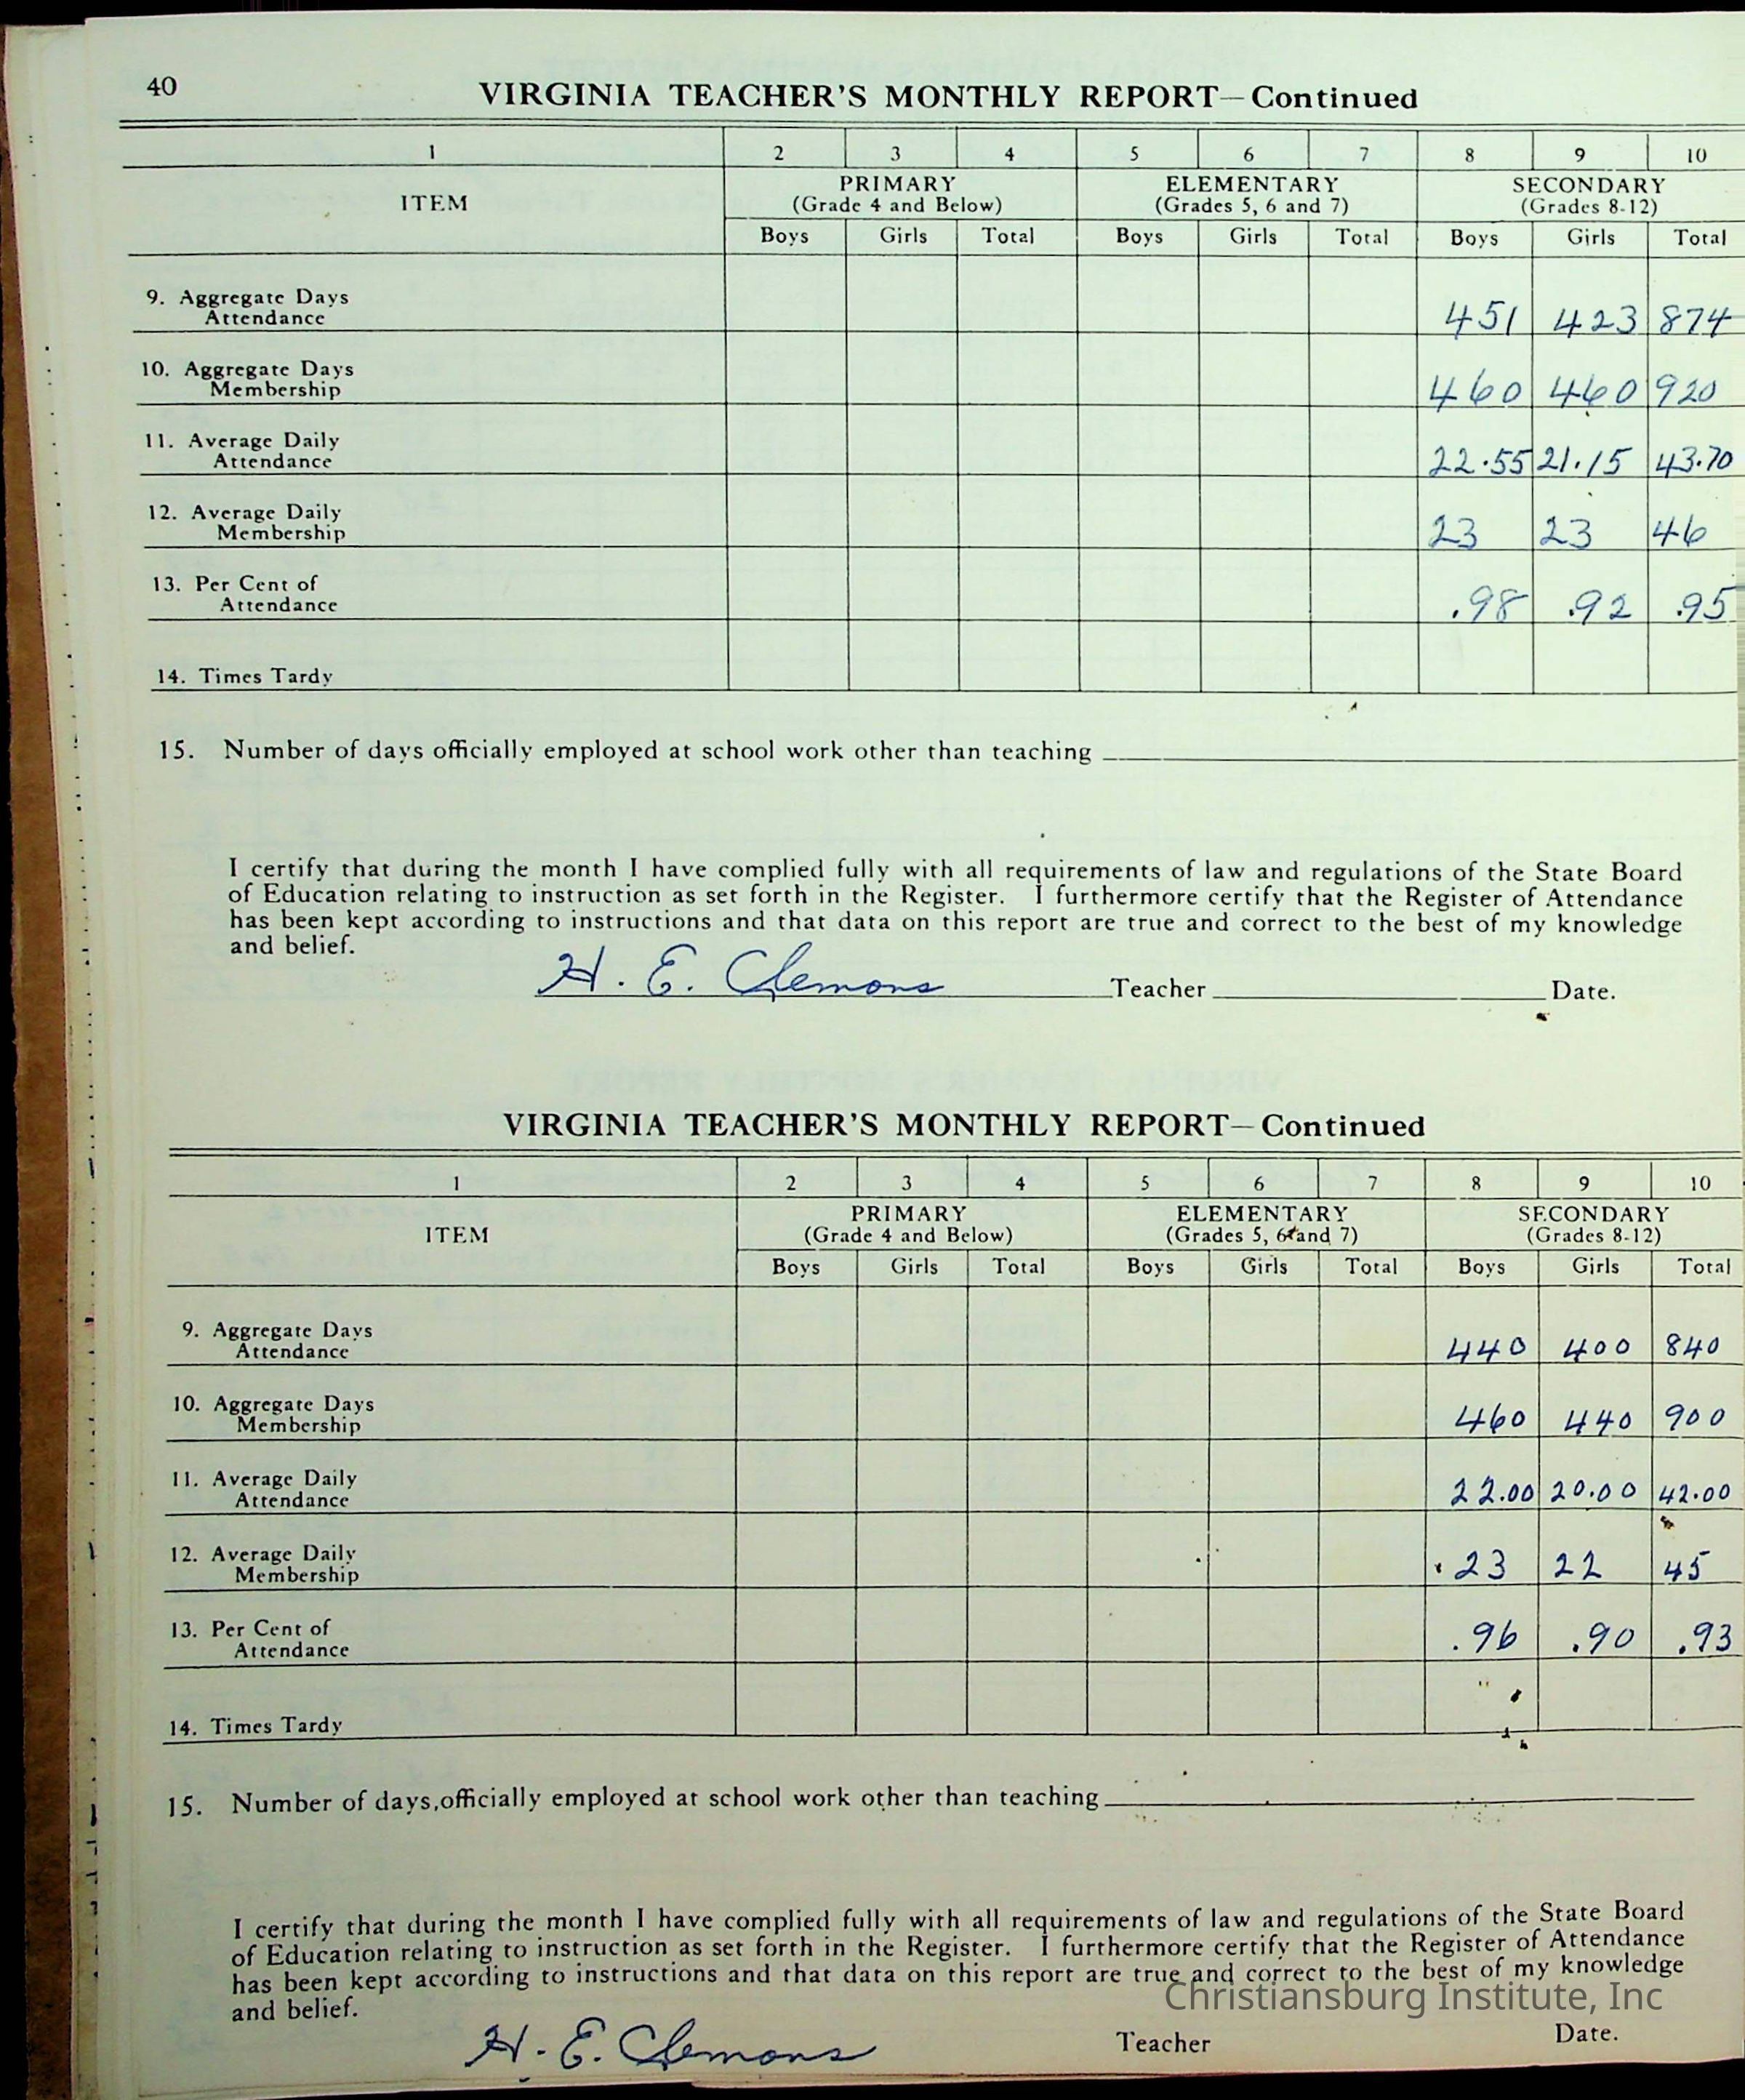 40
VIRGINIA TEACHER'S MONTHLY REPORT—Continued
1 2 3 4 5 6 7 8 9 10
ITEM PRIMARY (Grade 4 and Below) ELEMENTARY (Grades 5, 6 and 7) SECONDARY (Grades 8-12)
Boys Girls Total Boys Girls Total Boys Girls Total
9. Aggregate Days
Attendance 451 423 874
10. Aggregate Days
Membership 460 460 920
11. Average Daily
Attendance 22.55 21.15 43.70
12. Average Daily
Membership 23 23 46
13. Per Cent of
Attendance .98 .92 .95
14. Times Tardy
15. Number of days officially employed at school work other than teaching
I certify that during the month I have complied fully with all requirements of law and regulations of the State Board
of Education relating to instruction as set forth in the Register. I furthermore certify that the Register of Attendance
has been kept according to instructions and that data on this report are true and correct to the best of my knowledge
and belief.
H. E. Clemons Teacher Date.
VIRGINIA TEACHER'S MONTHLY REPORT—Continued
1 2 3 4 5 6 7 8 9 10
ITEM PRIMARY (Grade 4 and Below) ELEMENTARY (Grades 5, 6 and 7) SECONDARY (Grades 8-12)
Boys Girls Total Boys Girls Total Boys Girls Total
9. Aggregate Days
Attendance 440 400 840
10. Aggregate Days
Membership 460 440 900
11. Average Daily
Attendance 22.00 20.00 42.00
12. Average Daily
Membership 23 22 45
13. Per Cent of
Attendance .96 .90 .93
14. Times Tardy
15. Number of days officially employed at school work other than teaching
I certify that during the month I have complied fully with all requirements of law and regulations of the State Board
of Education relating to instruction as set forth in the Register. I furthermore certify that the Register of Attendance
has been kept according to instructions and that data on this report are true and correct to the best of my knowledge
and belief.
Christiansburg Institute, Inc
H. E. Clemons Teacher Date.